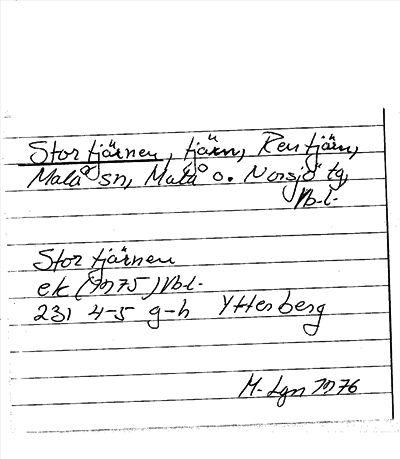 Stortjärnen, tjärn, Rentjärn,
Malå sn, Malå o. Norsjö tg,
Vb.l.
Stortjärnen
ek (1975) Vb.l.
231 4-5 g-h Ytterberg
M. Lgn 1976